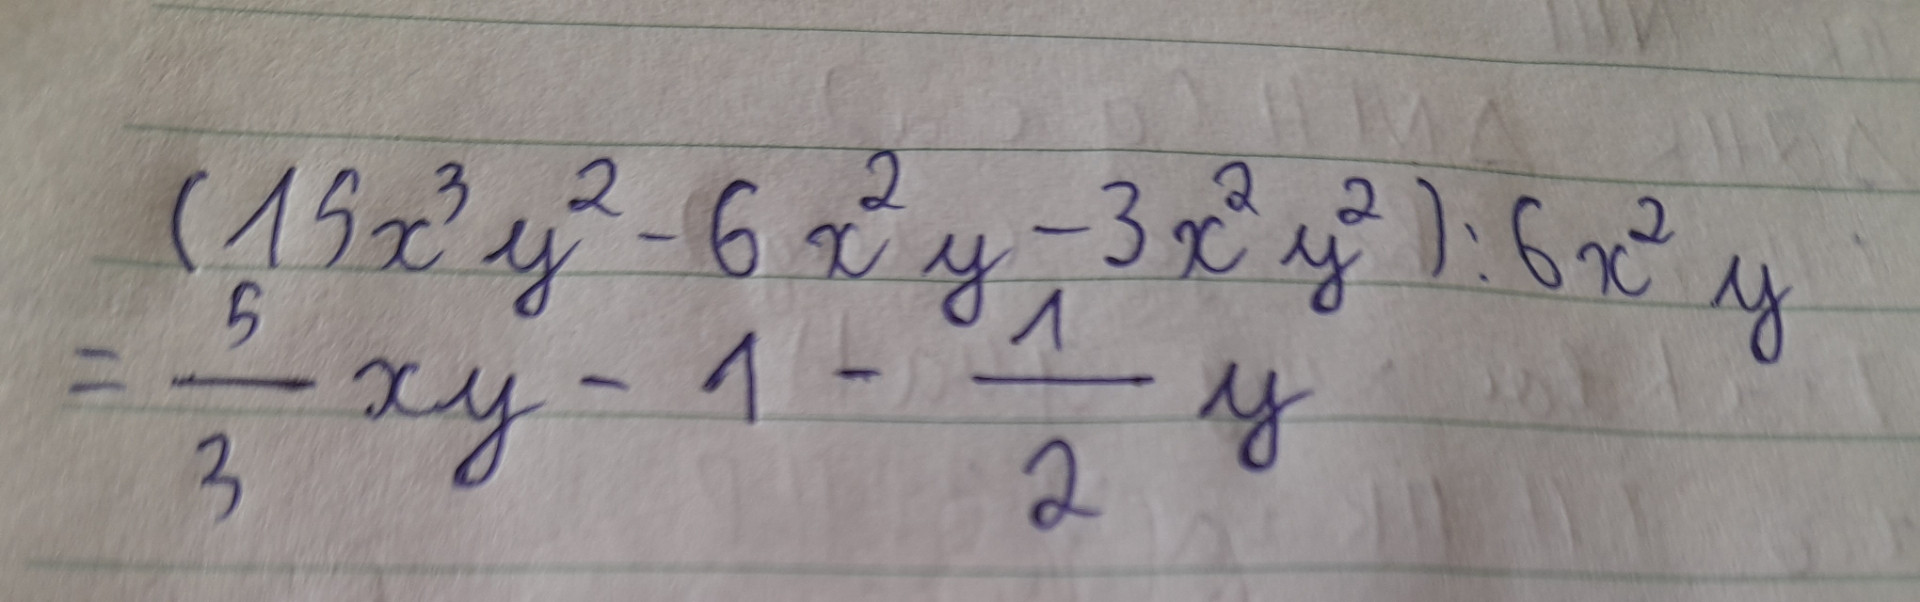 (15x³y² - 6x²y - 3x²y²) : 6x²y
= 5/3 xy - 1 - 1/2 y